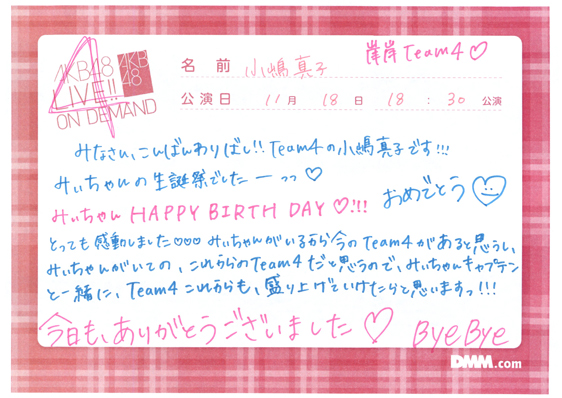 AKB48
LIVE!!
ON DEMAND
AKB
48
4
名前 小嶋真子
岸岸Team4♡
公演日 11月 18日 18:30公演
みなさん、こんばんわりばし!!Team4の小嶋真子です!!!
みぃちゃんの生誕祭でしたーっっ♡
おめでとう
みぃちゃんHAPPY BIRTH DAY♡!!!
とっても感動しました♡♡♡ みぃちゃんがいるから今のTeam4があると思うし、
みぃちゃんがいての、これからのTeam4だと思うので、みぃちゃんキャプテン
と一緒に、Team4これからも、盛り上げていけたらと思いますっ!!!
今日も、ありがとうございました♡ ByeBye
DMM.com